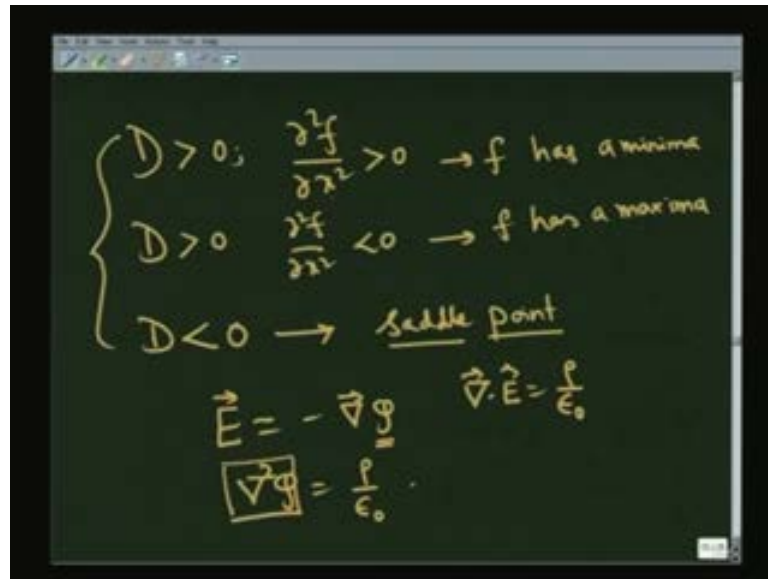 D > 0; ∂²f/∂x² > 0 → f has a minima
D > 0 ∂²f/∂x² < 0 → f has a maxima
D < 0 → saddle point
E⃗ = - ∇⃗ φ
∇⃗·E⃗ = ρ/ε₀
∇²φ = ρ/ε₀ .